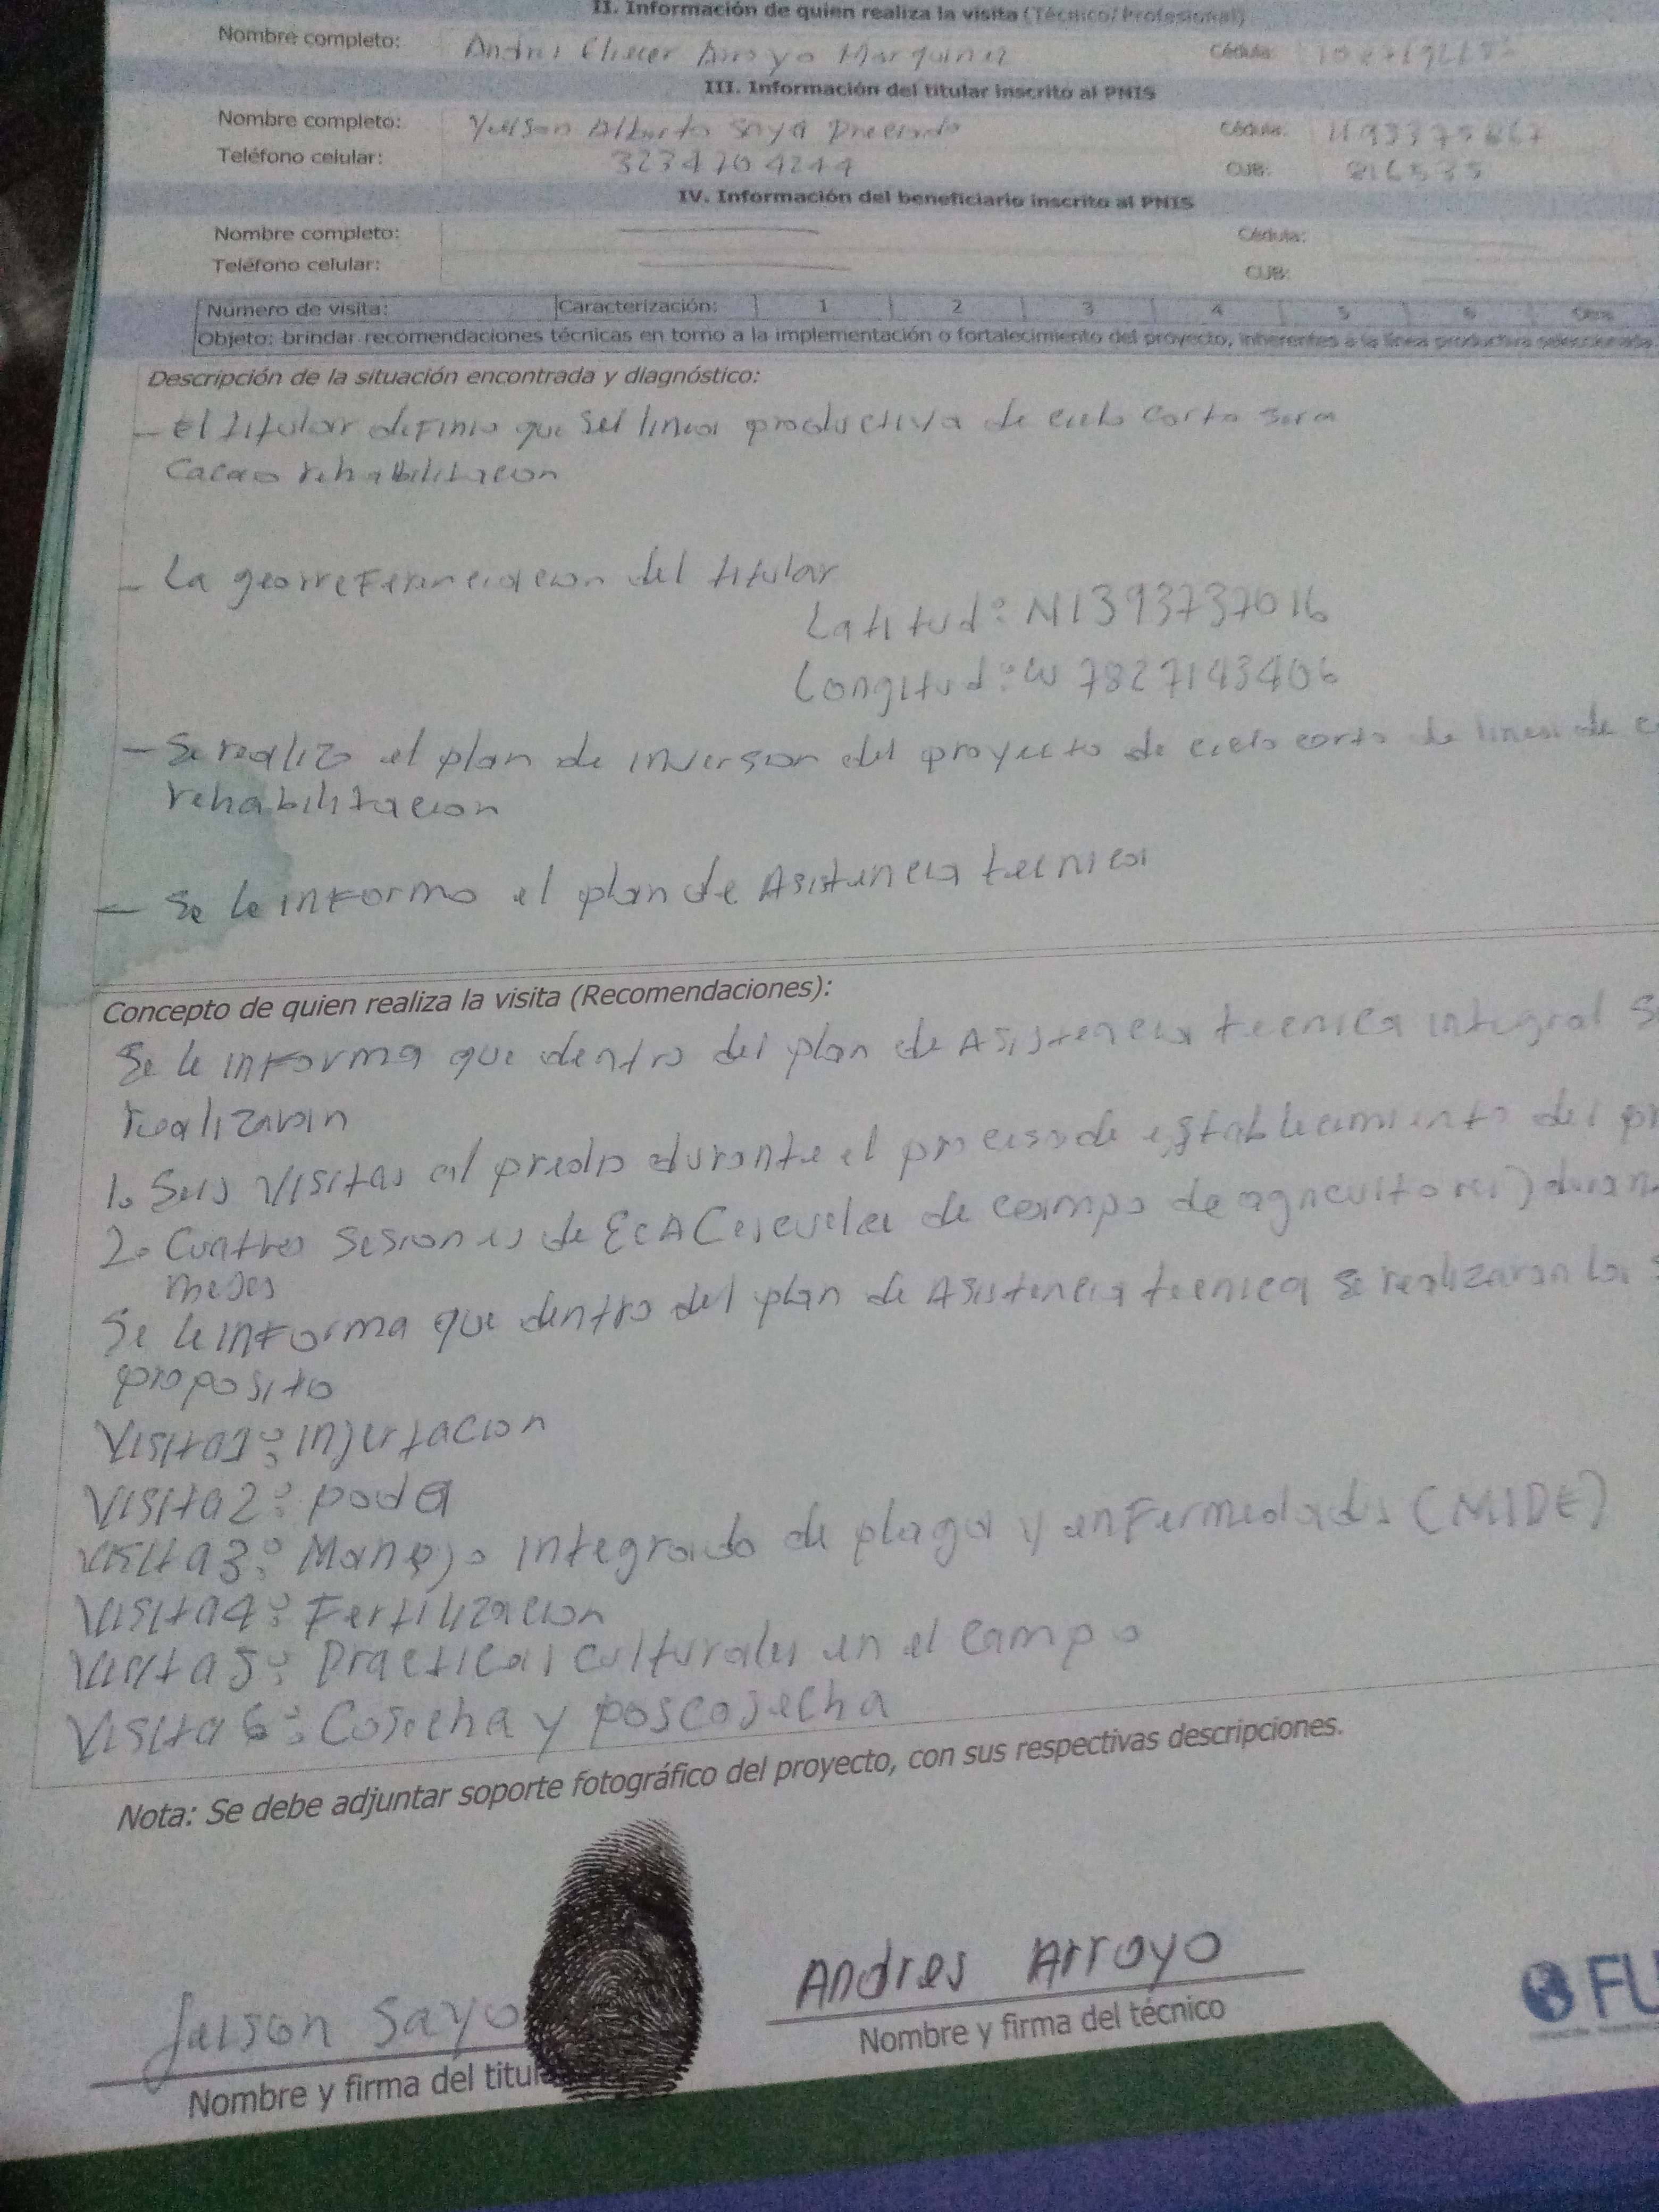 II. Información de quien realiza la visita (Técnico/Profesional)
Nombre completo: Andres Eliecer Arroyo Marquinez Cédula:
III. Información del titular inscrito al PNIS
Nombre completo: Alberto Saya Preciado Cédula: 1193375867
Teléfono celular: 3234204244 CUB: 816535
IV. Información del beneficiario inscrito al PNIS
Nombre completo: Cédula:
Teléfono celular: CUB:
Número de visita: Caracterización: 1 2 3 4 5 6 Otra
Objeto: brindar recomendaciones técnicas en torno a la implementación o fortalecimiento del proyecto, inherentes a la línea productiva seleccionada.
Descripción de la situación encontrada y diagnóstico:
- El titular definio que su linea productiva de ciclo corto sera
Cacao rehabilitacion
- La georreferenciacion del titular
Latitud: N1393737016
Longitud: W 7827143406
- Se realizo el plan de inversion del proyecto de ciclo corto de linea de c
rehabilitacion
- Se le informo el plan de Asistencia tecnica
Concepto de quien realiza la visita (Recomendaciones):
Se le informa que dentro del plan de Asistencia tecnica integral s
realizaran
1. Seis visitas al predio durante el proceso de establecimiento del pr
2. Cuatro sesiones de ECA (escuela de campo de agricultores) duran
meses
Se le informa que dentro del plan de Asistencia tecnica se realizaran las s
proposito
Visita1: injertacion
Visita2: poda
Visita3: Manejo integrado de plaga y enfermedades (MIDE)
Visita4: Fertilizacion
Visita5: Practicas culturales en el campo
Visita6: Cosecha y poscosecha
Nota: Se debe adjuntar soporte fotográfico del proyecto, con sus respectivas descripciones.
Jeison Sayo Andres Arroyo
Nombre y firma del titul Nombre y firma del técnico
FU